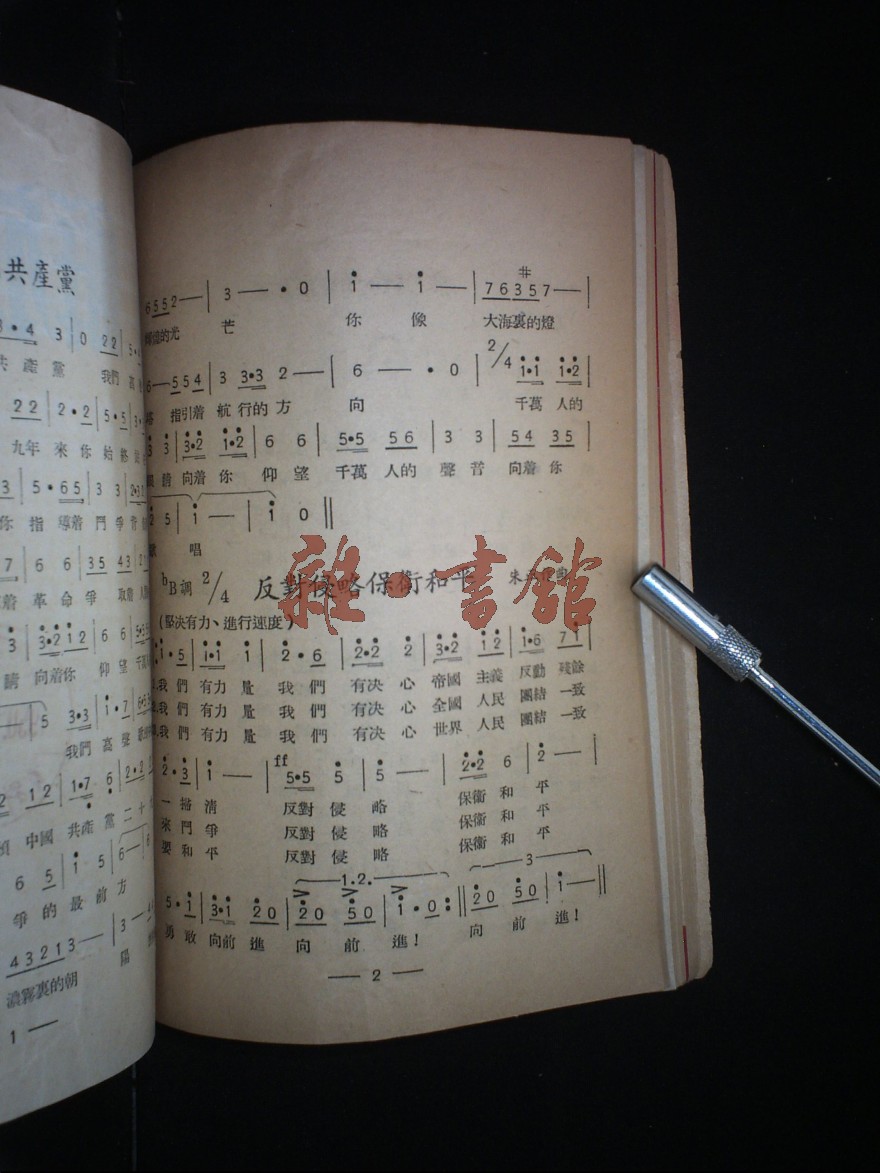 共產黨
3·4 3|0 22|5·
共產黨 我們
22|2·2|5·5|3·
九年來你始終
3|5·65|3 3|2·3
你指導着鬥爭
7|6 5|35 43|2
着革命爭取着人
3|3·2 1 2|6 6|5·5
請向着你 仰望 千萬
5|3·3|1·7|6·5
我們高聲
12 12|1·7 6|2·2
中國共產黨二十
6 5|1 5|6—|6
爭的最前方
4 3 2 1 3—|3—
濃霧裏的朝 陽
1—
6552—|3—·0|1—1—|76357—|
的光 芒 你 像 大海裏的燈
6—554|3 3·3 2—|6—·0|2/4 1·1 1·2|
塔 指引着 航行的方 向 千萬人的
3 3|3·2 1·2|6 6|5·5 56|3 3|54 35|
請向着你 仰望 千萬人的聲音 向着你
2 5|1—|1 0‖
歌 唱
bB調 2/4 反對侵略保衛和平 朱
(堅决有力、進行速度)
1·5|1·1 1|2·6|2·2 2|3·2 12|1·6 71|
我們有力量 我們有决心 帝國主義反動殘餘
我們有力量 我們有决心 全國人民團結一致
我們有力量 我們有决心 世界人民團結一致
2·3|1—|ff 5·5 5|5—|2·2 6|2—|
一掃清 反對侵略 保衛和平
來鬥爭 反對侵略 保衛和平
要和平 反對侵略 保衛和平
1.2. 3
5·1|3·1 20|20 50|1·0:‖20 50|1—‖
勇敢向前進 向前進! 向前進!
— 2 —
雜·書館